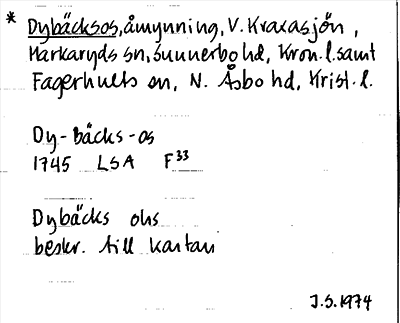 * Dybäcksos, åmynning, V. Kraxasjön,
Markaryds sn, Sunnerbo hd, Kron. l. samt
Fagerhults sn, N. Åsbo hd, Krist. l.
Dy-bäcks-os
1745 LSA F³³
Dybäcks ohs
beskr. till kartan
J.S. 1974